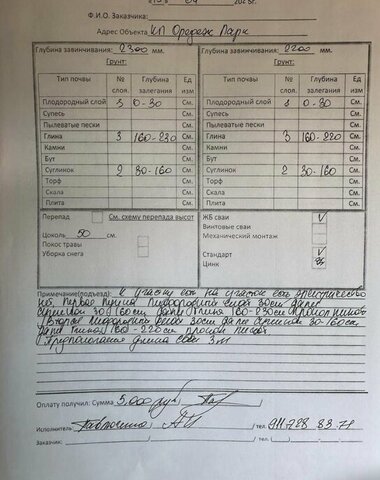 Ф.И.О. Заказчика:
Адрес Объекта КП Оредеж Парк
Глубина завинчивания: 2300 мм. Глубина завинчивания: 2200 мм.
Грунт: Грунт:
Тип почвы № слоя. Глубина залегания Ед изм Тип почвы № слоя. Глубина залегания Ед изм
Плодородный слой 1 0-30 См. Плодородный слой 1 0-30 См.
Супесь См. Супесь См.
Пылеватые пески См. Пылеватые пески См.
Глина 3 160-230 См. Глина 3 160-220 См.
Камни См. Камни См.
Бут См. Бут См.
Суглинок 2 30-160 См. Суглинок 2 30-160 См.
Торф См. Торф См.
Скала См. Скала См.
Плита См. Плита См.
Перепад См. схему перепада высот ЖБ сваи V
Винтовые сваи
Цоколь 50 см. Механический монтаж
Покос травы
Уборка снега Стандарт V
Цинк
Примечание(подъезд): К участку есть на участке есть электричество
первая плодородный слой 30см далее
суглинок 30/160см далее глина 160-230см
Вторая плодородный слой 30см далее суглинок 30-160см
далее глина 160-220см
Предполагаемая длина сваи 3м
Оплату получил: Сумма 5.000 руб /
Исполнитель: / тел. 911.728 83.71
Заказчик: / тел.